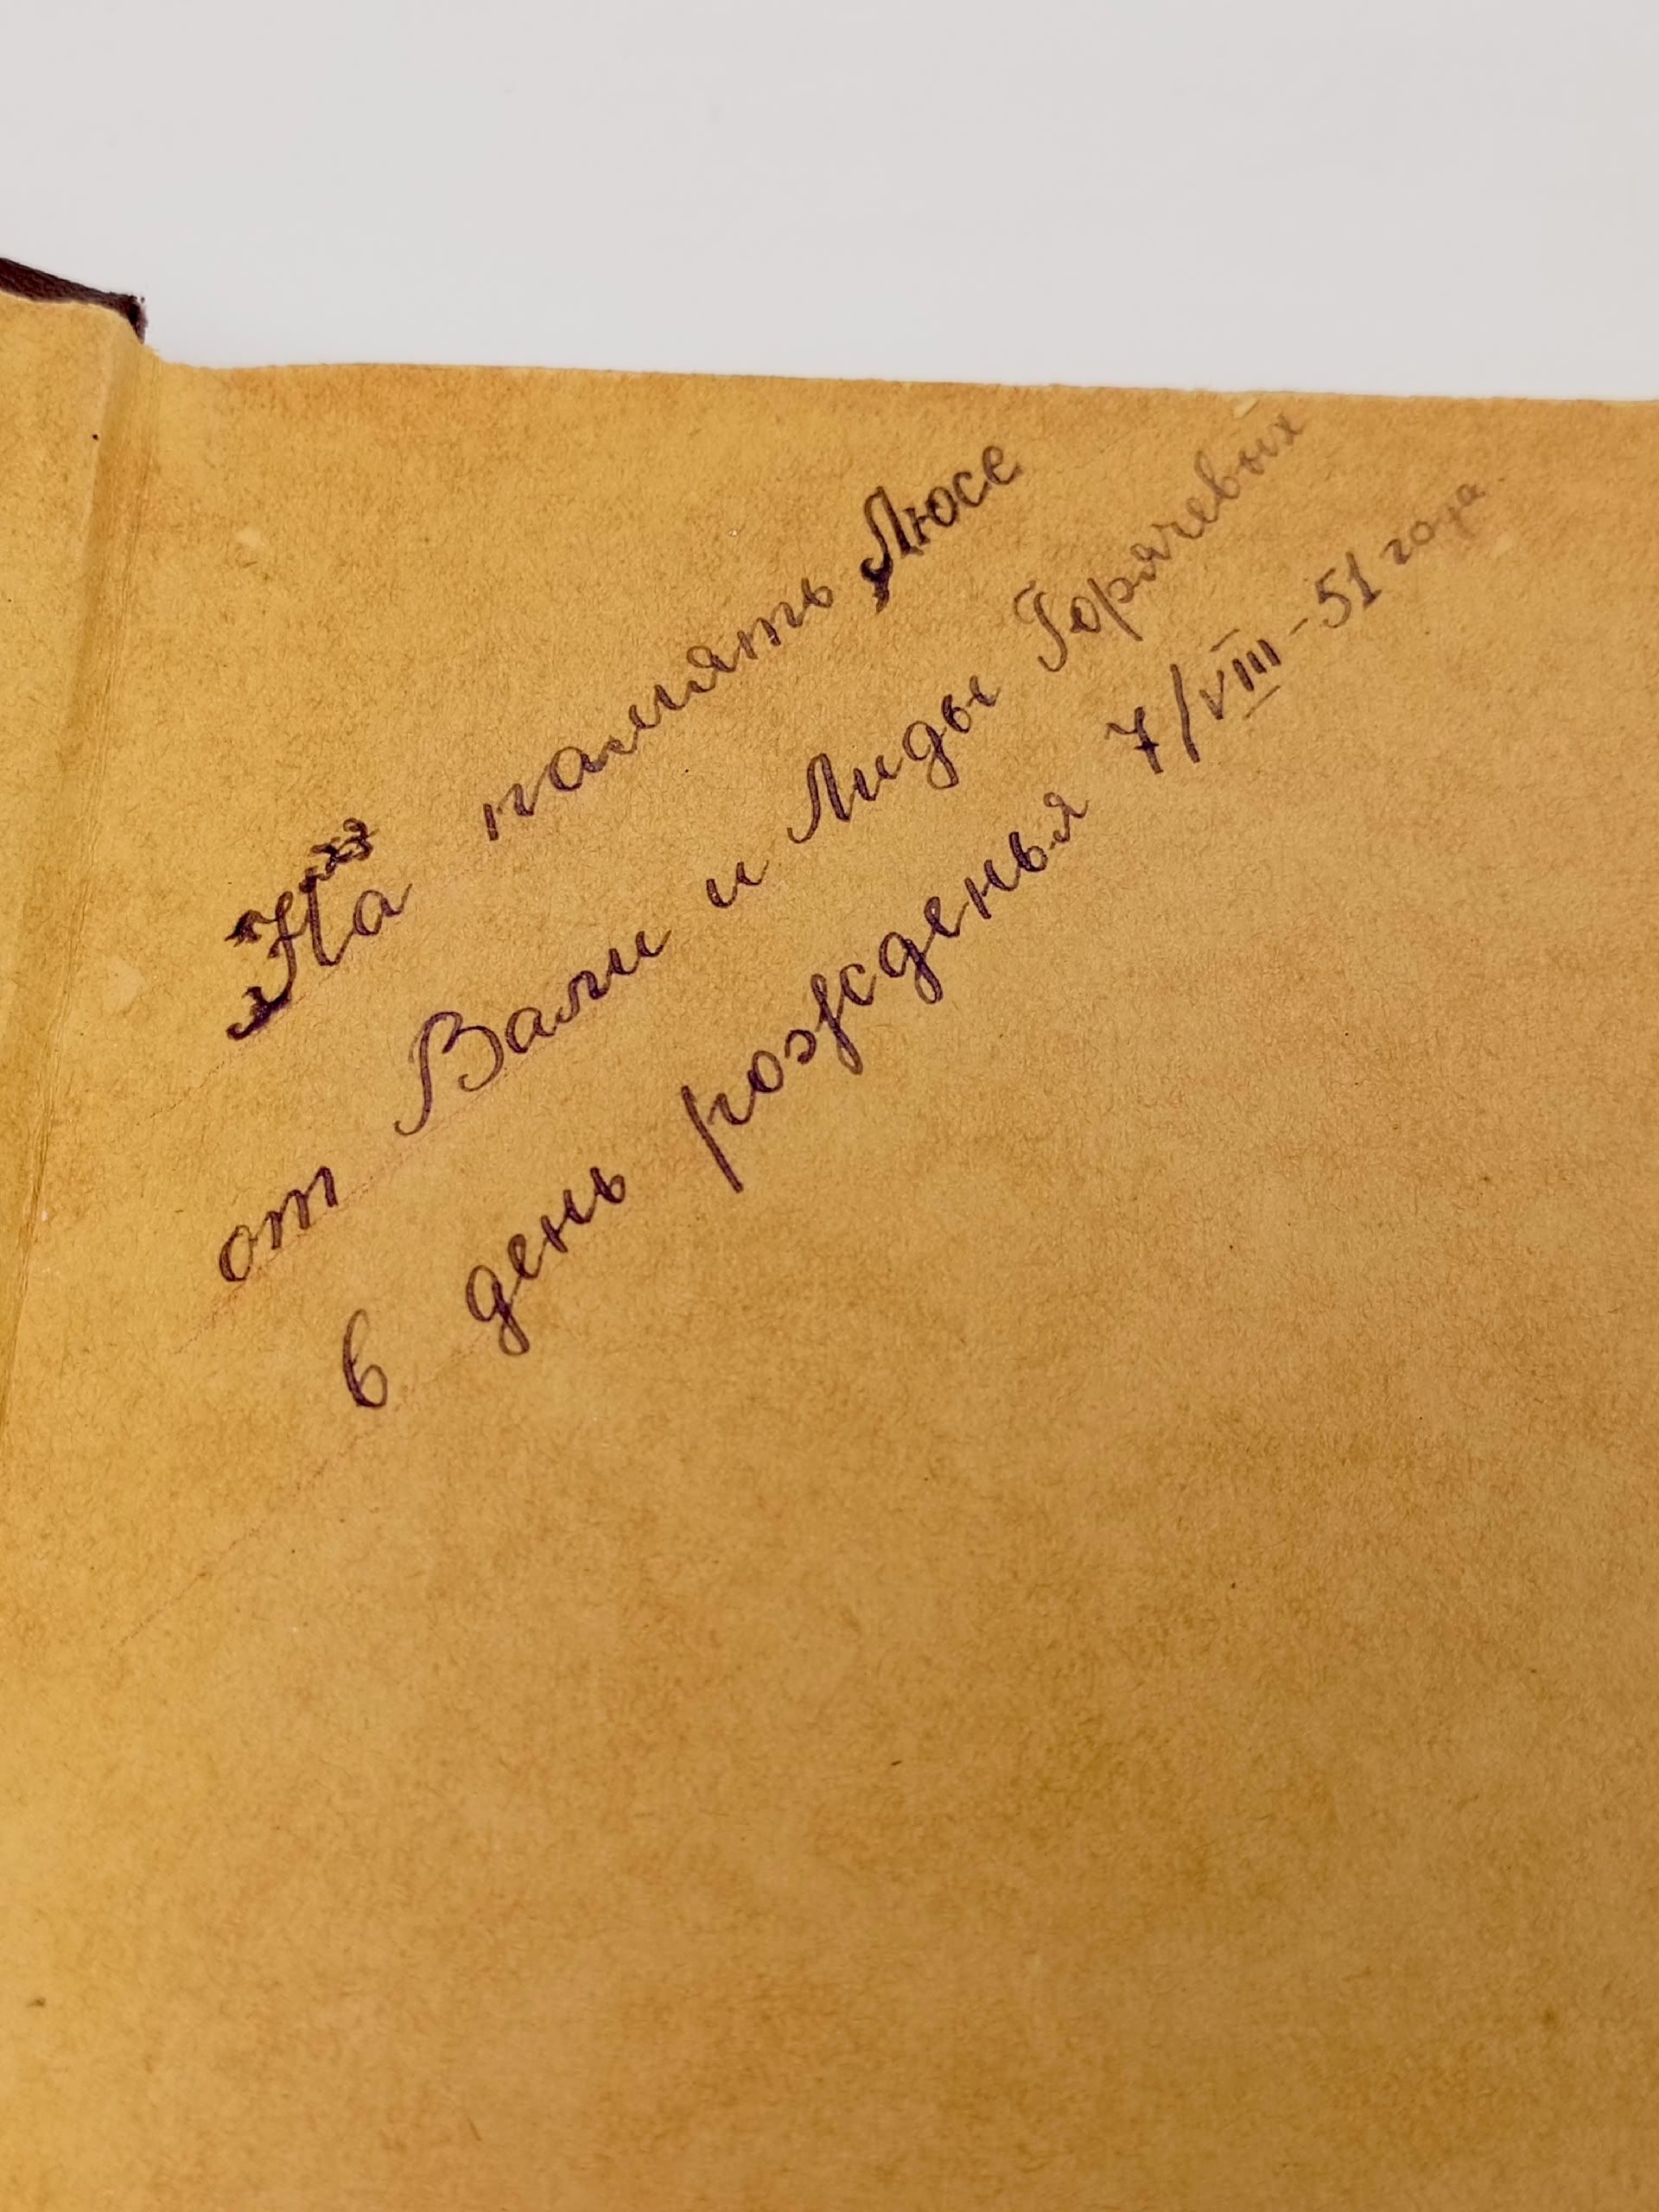 На память Люсе
от Вали и Лиды Горячевых
в день рожденья 7/VIII-51 года